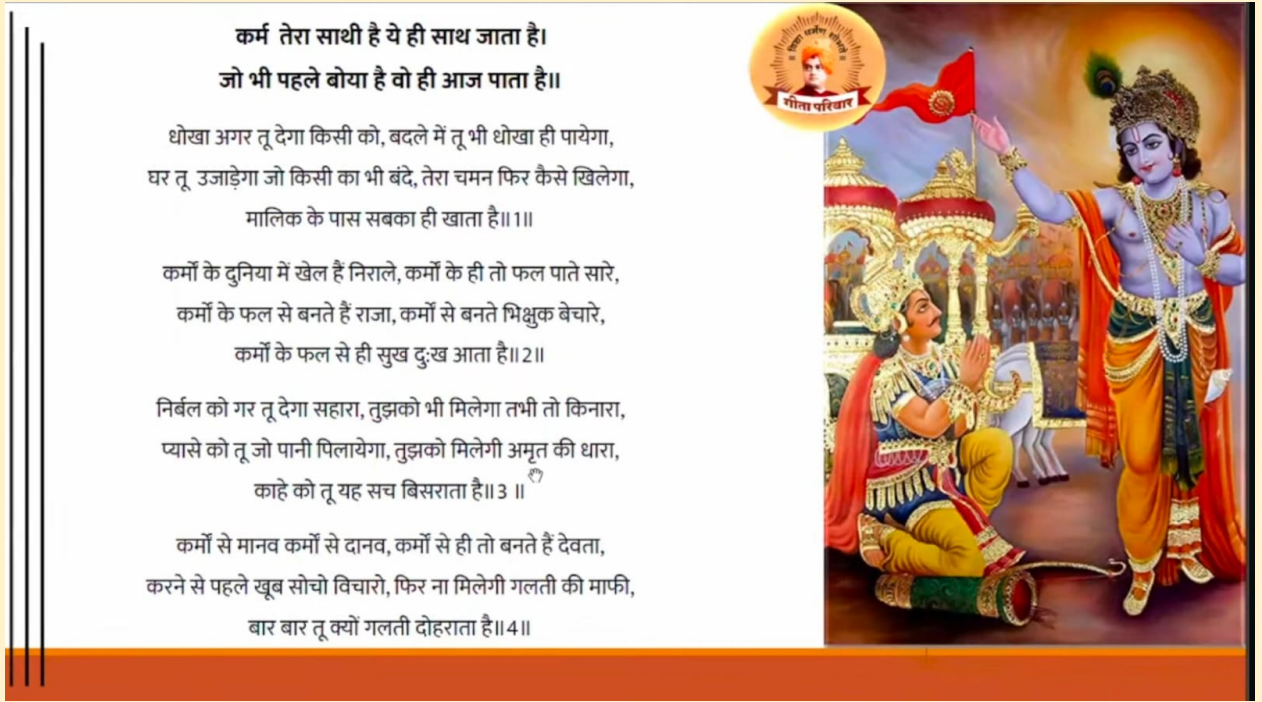 कर्म तेरा साथी है ये ही साथ जाता है।
जो भी पहले बोया है वो ही आज पाता है॥
धोखा अगर तू देगा किसी को, बदले में तू भी धोखा ही पायेगा,
घर तू उजाड़ेगा जो किसी का भी बंदे, तेरा चमन फिर कैसे खिलेगा,
मालिक के पास सबका ही खाता है॥1॥
कर्मों के दुनिया में खेल हैं निराले, कर्मों के ही तो फल पाते सारे,
कर्मों के फल से बनते हैं राजा, कर्मों से बनते भिक्षुक बेचारे,
कर्मों के फल से ही सुख दुःख आता है॥2॥
निर्बल को गर तू देगा सहारा, तुझको भी मिलेगा तभी तो किनारा,
प्यासे को तू जो पानी पिलायेगा, तुझको मिलेगी अमृत की धारा,
काहे को तू यह सच बिसराता है॥3 ॥
कर्मों से मानव कर्मों से दानव, कर्मों से ही तो बनते हैं देवता,
करने से पहले खूब सोचो विचारो, फिर ना मिलेगी गलती की माफी,
बार बार तू क्यों गलती दोहराता है॥4॥
॥ विद्या धर्मेण शोभते ॥
गीता परिवार